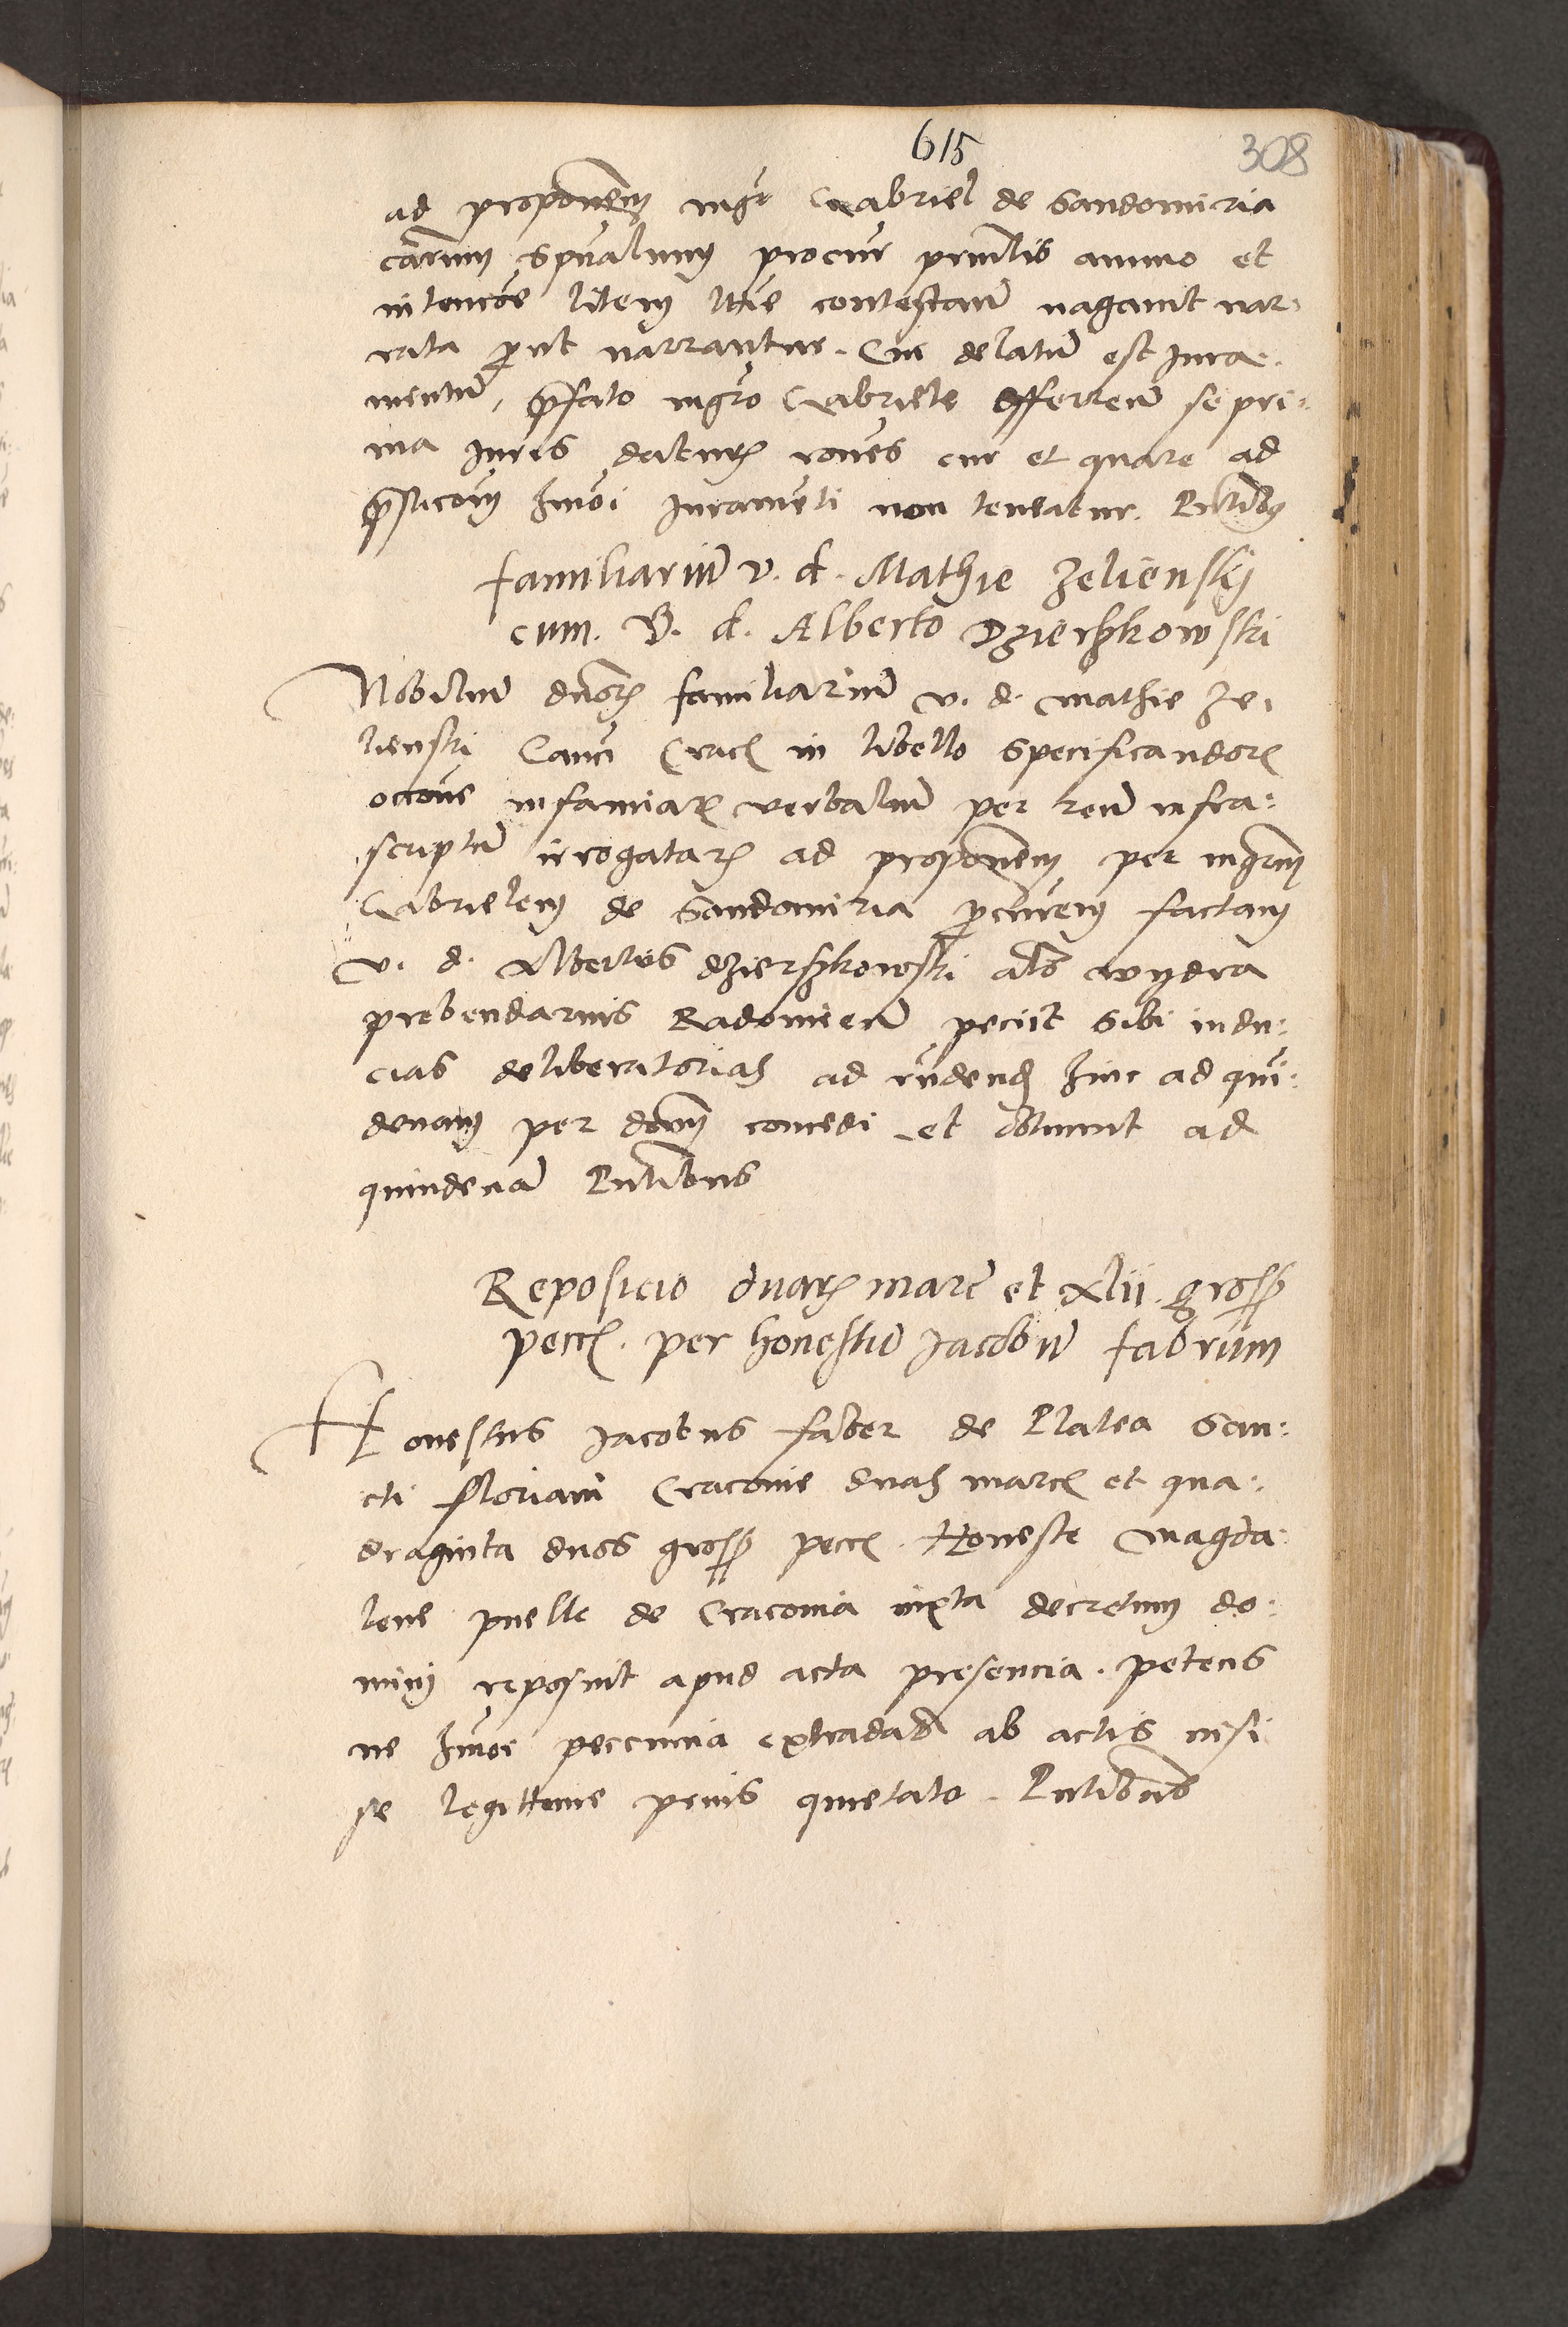 615
308
ad proponem mgr Gabriel de Sandomiria
carum spualium procur prmlis animo et
intencoe litem lttie contestam negavit nar:
rata put narrantur. Cui delatum est Iura:
mentum, pfato mgro Gabriele offerrem se pri:
ma Iuris daturum rones cur et quare ad
psticom hmoi Iuramenti non teneatur. Pntibus
familiarium v. d. Mathie Zelienskij
cum. V. d. Alberto Dzierszkowski
Nobilium dnorum familiarium v. d. Mathie Ze:
lienski Canci Crac in libello specificandorum
occone infamiarum verbalium per reum infra:
scriptum irrogatarum ad proponem per mgrum
Gabrielem de Sandomiria pclurem factam
v. d. Albertus Dzierszkowski als wydra
prebendarius Radomien peciit sibi indu:
cias deliberatorias ad rndendum hinc ad qui:
denam per dnum concedi et obtinuit ad
quindenam Pntibus
Reposicio duarum marc et xlii gross
pecc. per honestum Jacobum fabrum
Honestus Jacobus faber de Platea San:
cti floriani Cracovie duas marc et qua:
draginta duos gross pecc. Honeste Magda:
lene puelle de Cracovia iuxta decretum do:
mini reposuit apud acta presencia. petens
ne hmoi peccunia extradatur ab actis nisi
se legittime prius quietato. Pntibus